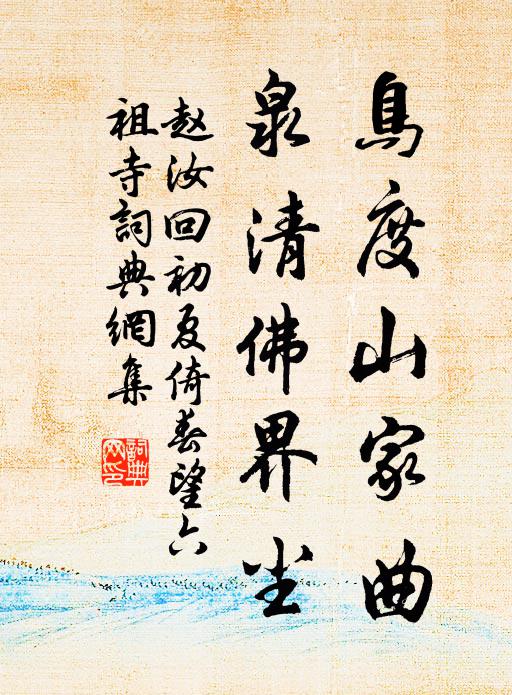 鳥度山家曲
泉清佛界尘
赵汝回初夏倚春望六
祖寺詞典網集
詞典
网印